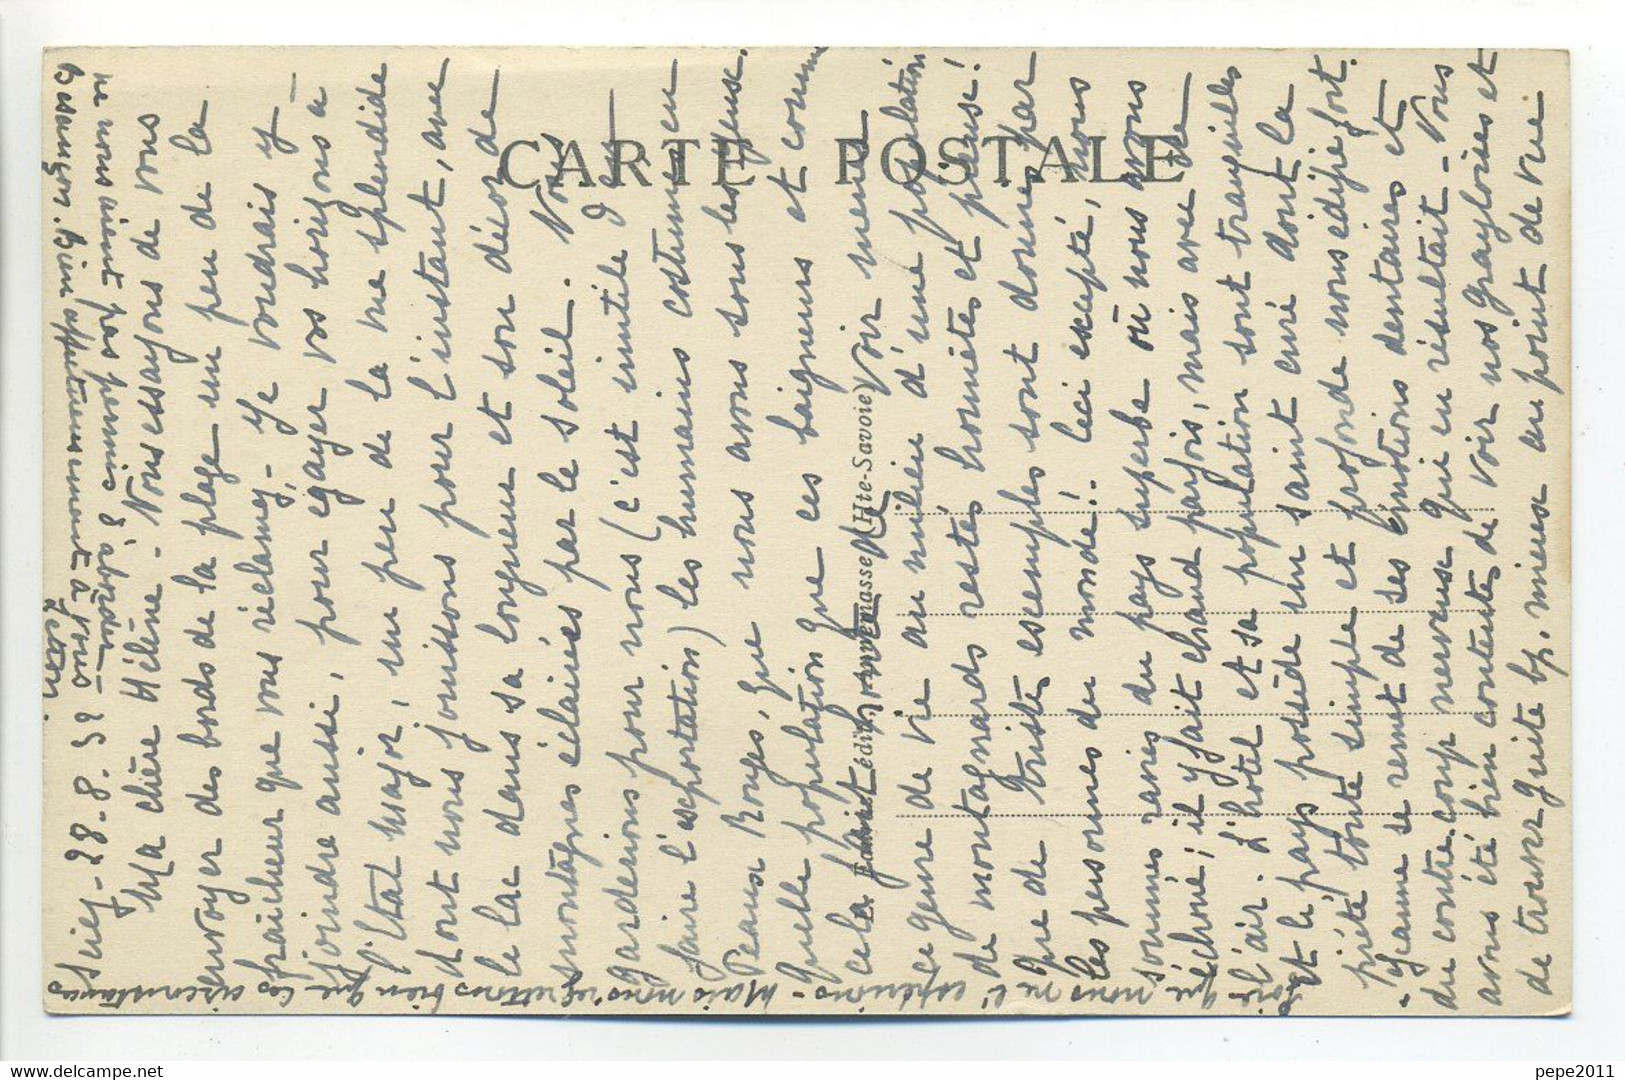 Sciez - 28.8.39
Ma chère Hélène - Nous essayons de vous
envoyer des bords de la plage un peu de la
fraîcheur que vous réclamez - Je voudrais y
joindre aussi, pour égayer vos horizons à
l'Etat major, un peu de la vue splendide
dont nous jouissons pour l'instant, avec
le lac dans sa longueur et son décor de
montagnes éclairées par le soleil. Nous
garderions pour nous (c'est inutile d'en
faire l'exportation) les humains costumés en
Peaux Rouges, que nous avons sous les yeux.
Quelle population que ces baigneurs et comme
cela fait de la peine de voir mener
ce genre de vie au milieu d'une population
de montagnards restés honnêtes et pieux!
Que de tristes exemples sont donnés par
les personnes du monde!. Ceci excepté, nous
sommes ravies du pays superbe où nous avons
échoué; il y fait chaud parfois, mais avec de
l'air. L'hôtel et sa population sont tranquilles
et le pays possède un saint curé dont la
piété toute simple et profonde nous édifie fort.
- Jeanne se remet de ses émotions dentaires et
du contre coup nerveux qui en résultait - Nous
avons été bien contentes de voir nos Grayloises et
de trouver Guite bp. mieux au point de vue
que nous ne l'espérions - Mais nous regrettons bien que les circonstances
ne nous aient pas permis d'aborder
Besançon. Bien affectueusement à vous
CARTE POSTALE
E. Fauraz édit. Douvaine (Hte-Savoie)